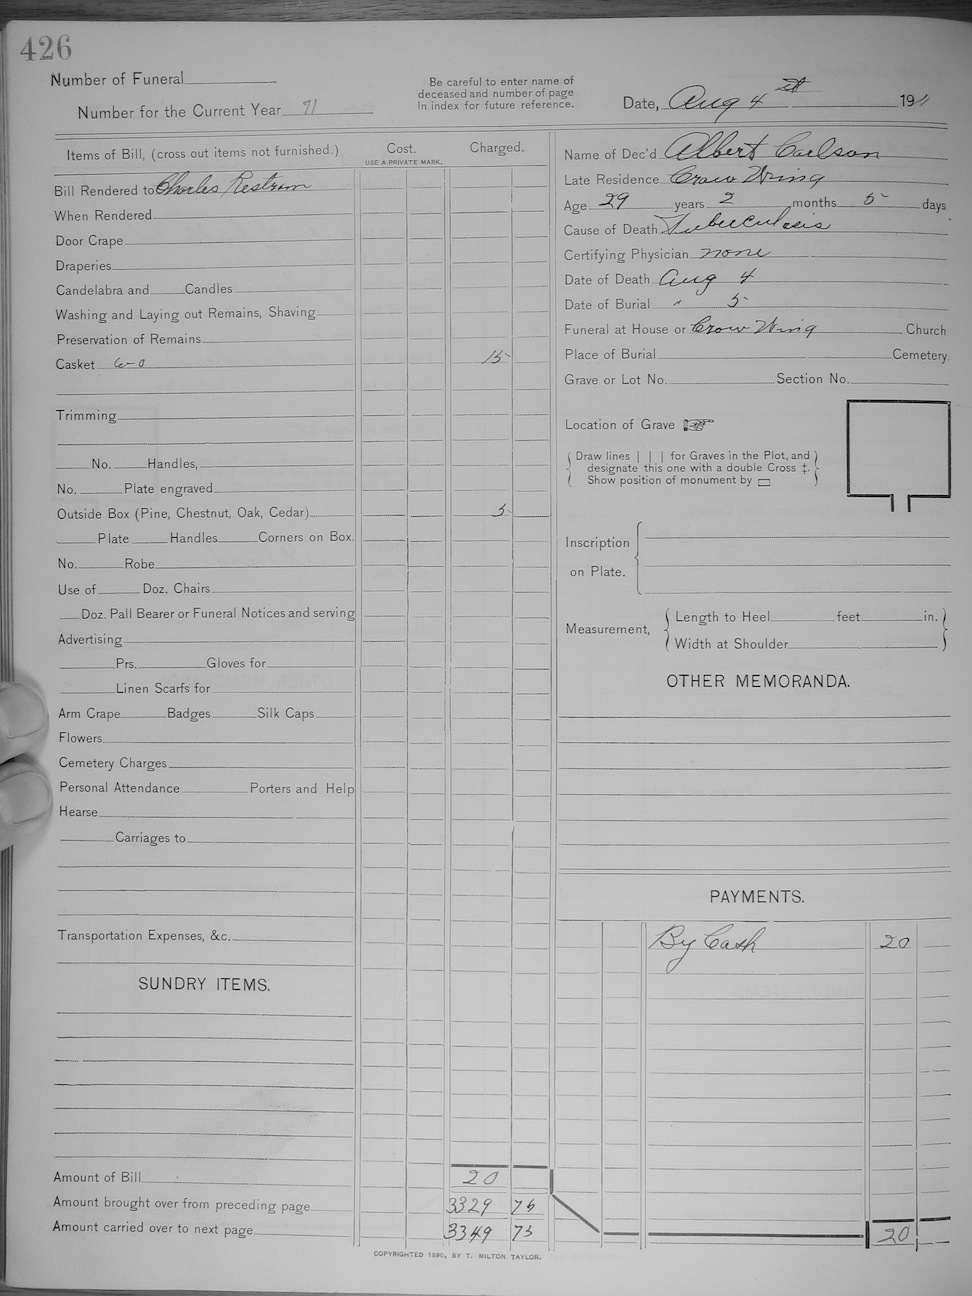 426
Number of Funeral
Number for the Current Year 91
Be careful to enter name of
deceased and number of page
in index for future reference.
Date, Aug 4 191
Items of Bill, (cross out items not furnished.)
Cost.
USE A PRIVATE MARK.
Charged.
Bill Rendered to Charles Restrom
When Rendered
Door Crape
Draperies
Candelabra and Candles
Washing and Laying out Remains, Shaving
Preservation of Remains
Casket 6-0 15
Trimming
No. Handles,
No. Plate engraved
Outside Box (Pine, Chestnut, Oak, Cedar) 5
Plate Handles Corners on Box.
No. Robe
Use of Doz. Chairs
Doz. Pall Bearer or Funeral Notices and serving
Advertising
Prs. Gloves for
Linen Scarfs for
Arm Crape Badges Silk Caps
Flowers
Cemetery Charges
Personal Attendance Porters and Help
Hearse
Carriages to
Transportation Expenses, &c.
SUNDRY ITEMS.
Amount of Bill 20
Amount brought over from preceding page 3329 75
Amount carried over to next page 3349 75
Name of Dec'd Albert Carlson
Late Residence Crow Wing
Age 29 years 2 months 5 days
Cause of Death Tuberculosis
Certifying Physician none
Date of Death Aug 4
Date of Burial " 5
Funeral at House or Crow Wing Church
Place of Burial Cemetery
Grave or Lot No. Section No.
Location of Grave ☞
Draw lines | | | for Graves in the Plot, and
designate this one with a double Cross ‡.
Show position of monument by ▭
Inscription
on Plate.
Measurement,
Length to Heel feet in.
Width at Shoulder
OTHER MEMORANDA.
PAYMENTS.
By Cash 20
20
COPYRIGHTED 1890, BY T. MILTON TAYLOR.